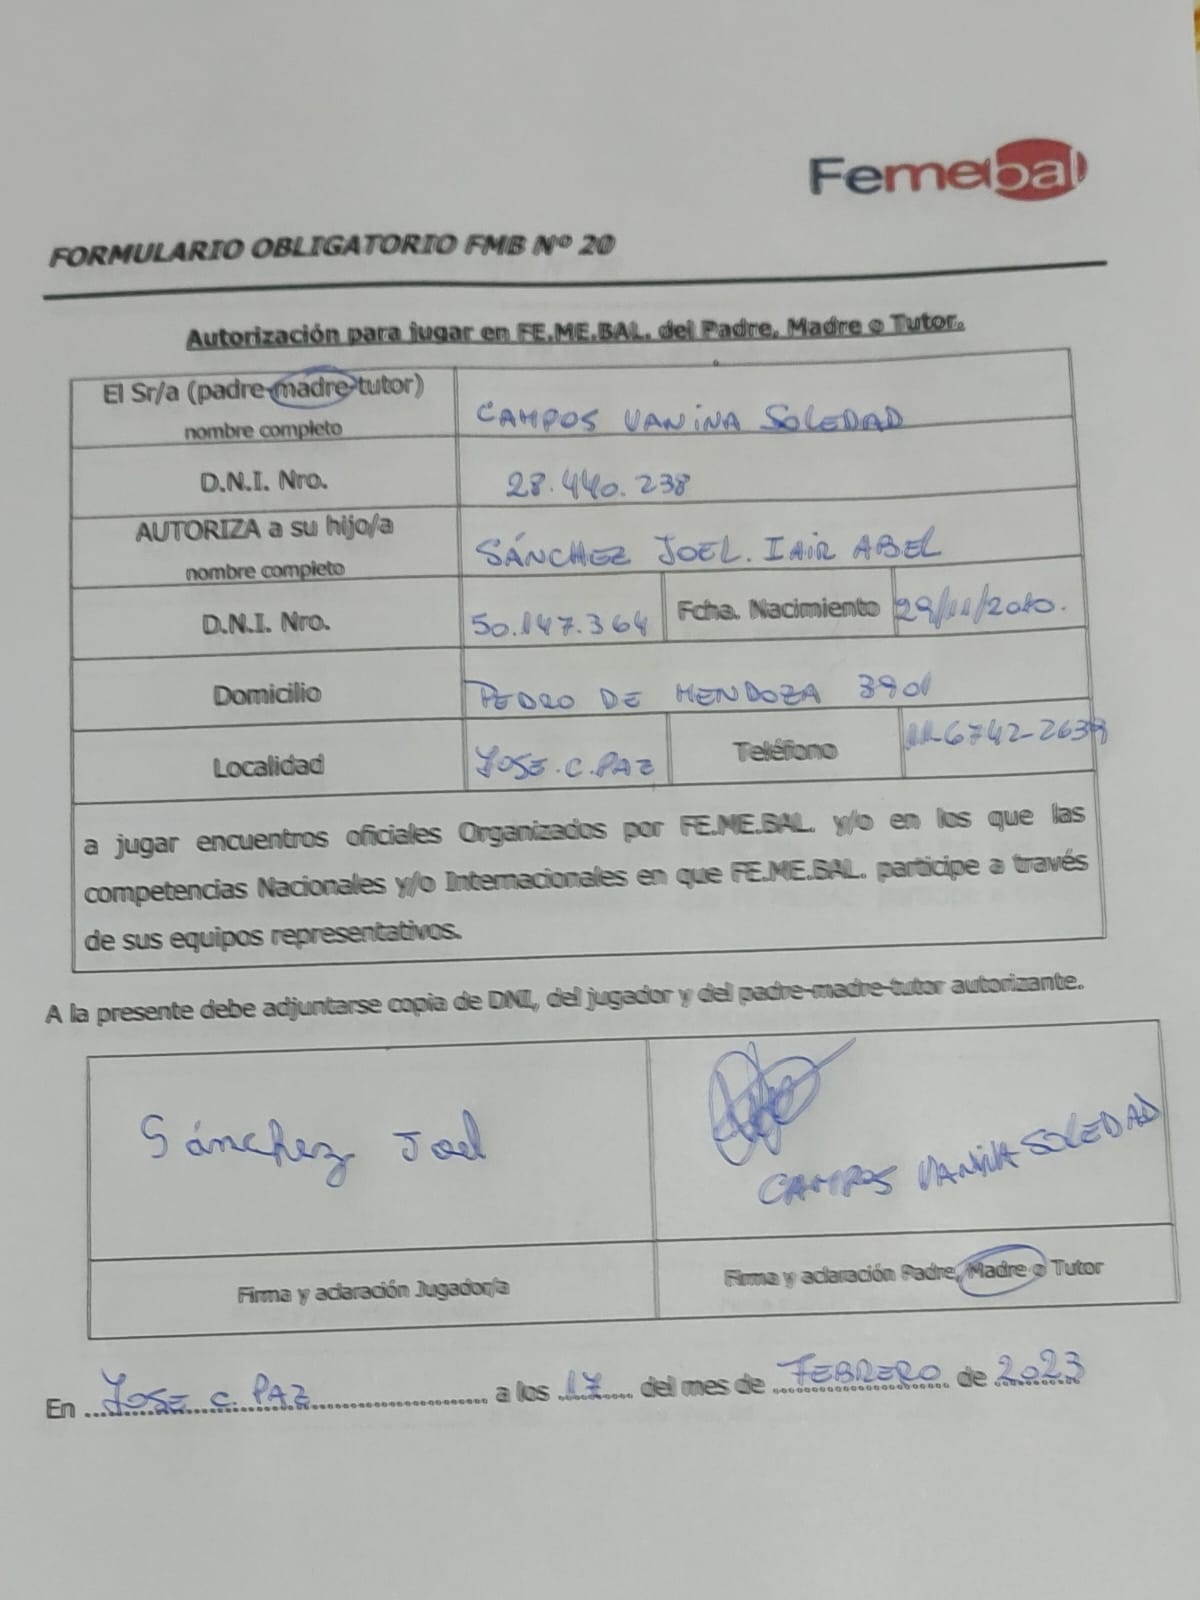 Femebal
FORMULARIO OBLIGATORIO FMB Nº 20
Autorización para jugar en FE.ME.BAL. del Padre, Madre o Tutor.
El Sr/a (padre-madre-tutor)
nombre completo
CAMPOS VANINA SOLEDAD
D.N.I. Nro.
28.440.238
AUTORIZA a su hijo/a
nombre completo
SÁNCHEZ JOEL. IAIR ABEL
D.N.I. Nro.
50.147.364
Fcha. Nacimiento
29/11/2010.
Domicilio
PEDRO DE MENDOZA 3901
Localidad
JOSE.C.PAZ
Teléfono
11-6742-2639
a jugar encuentros oficiales Organizados por FE.ME.BAL. y/o en los que las
competencias Nacionales y/o Internacionales en que FE.ME.BAL. participe a través
de sus equipos representativos.
A la presente debe adjuntarse copia de DNI, del jugador y del padre-madre-tutor autorizante.
Sánchez Joel
CAMPOS VANINA SOLEDAD
Firma y aclaración Jugador/a
Firma y aclaración Padre, Madre o Tutor
En JOSE C. PAZ a los 17 del mes de FEBRERO de 2023